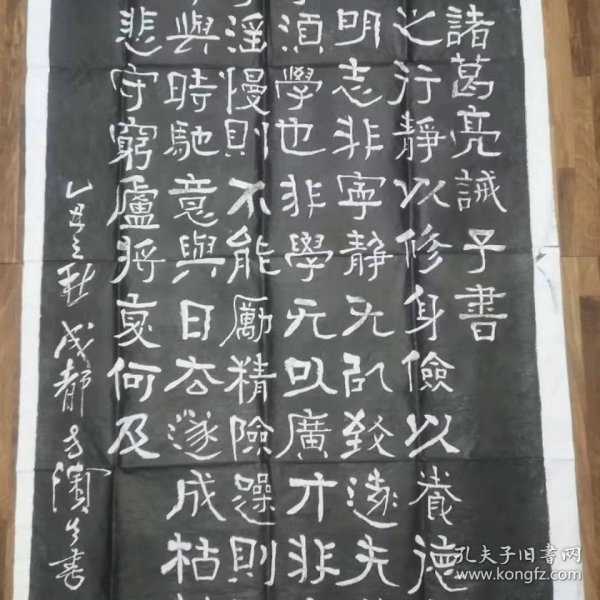 諸葛亮誡子書
之行靜以修身儉以養德
明志非寧靜无以致遠夫
須學也非學无以廣才非
淫慢則不能勵精險躁則
與時馳意與日去遂成枯
悲守窮廬將復何及
乙丑之秋 成都 方濱生書
孔夫子旧书网
www.kongfz.com